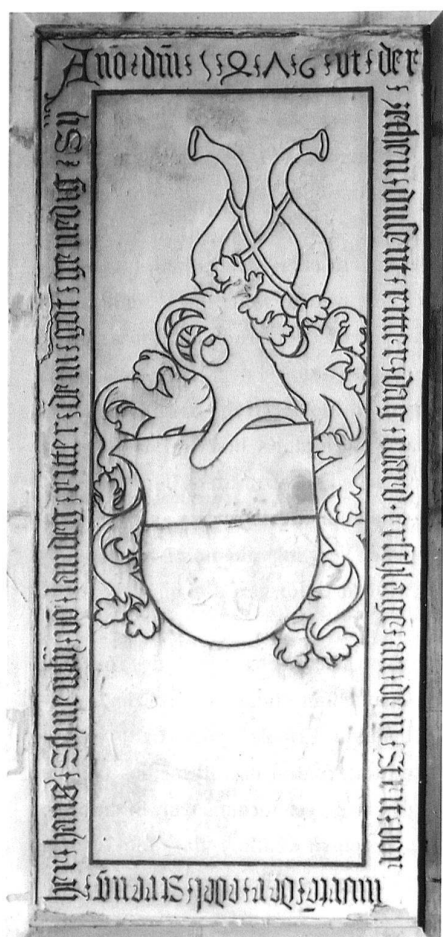 Anō dm̄ 1476 uf der
zehen dusent ritter dag ward erschlagē an dem Strit von
murtē der edel Streng
her hans Schnewlÿ vō landeg ritter dem got genedig Sy